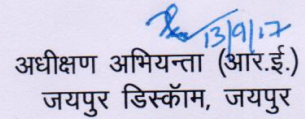 13/9/17
अधीक्षण अभियन्ता (आर.ई.)
जयपुर डिस्कॉम, जयपुर